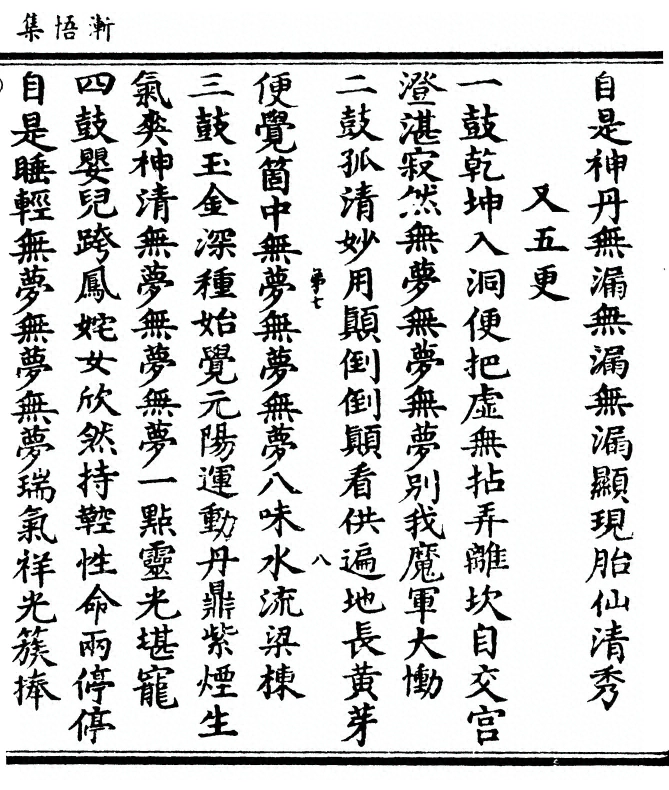 漸悟集
自是神丹無漏無漏無漏顯現胎仙清秀
又五更
一鼓乾坤入洞便把虛無拈弄離坎自交宮
澄湛寂然無夢無夢無夢別我魔軍大慟
第七
八
二鼓孤清妙用顛倒倒顛看供遍地長黃芽
便覺箇中無夢無夢無夢八味水流梁棟
三鼓玉金深種始覺元陽運動丹鼎紫煙生
氣爽神清無夢無夢無夢一點靈光堪寵
四鼓嬰兒跨鳳姹女欣然持鞚性命兩停停
自是睡輕無夢無夢無夢瑞氣祥光簇捧